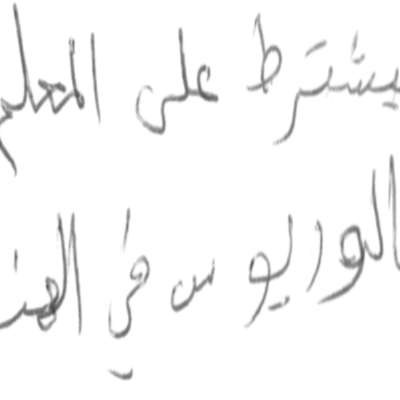 يشترط على المعلم
الوريوس في الهند